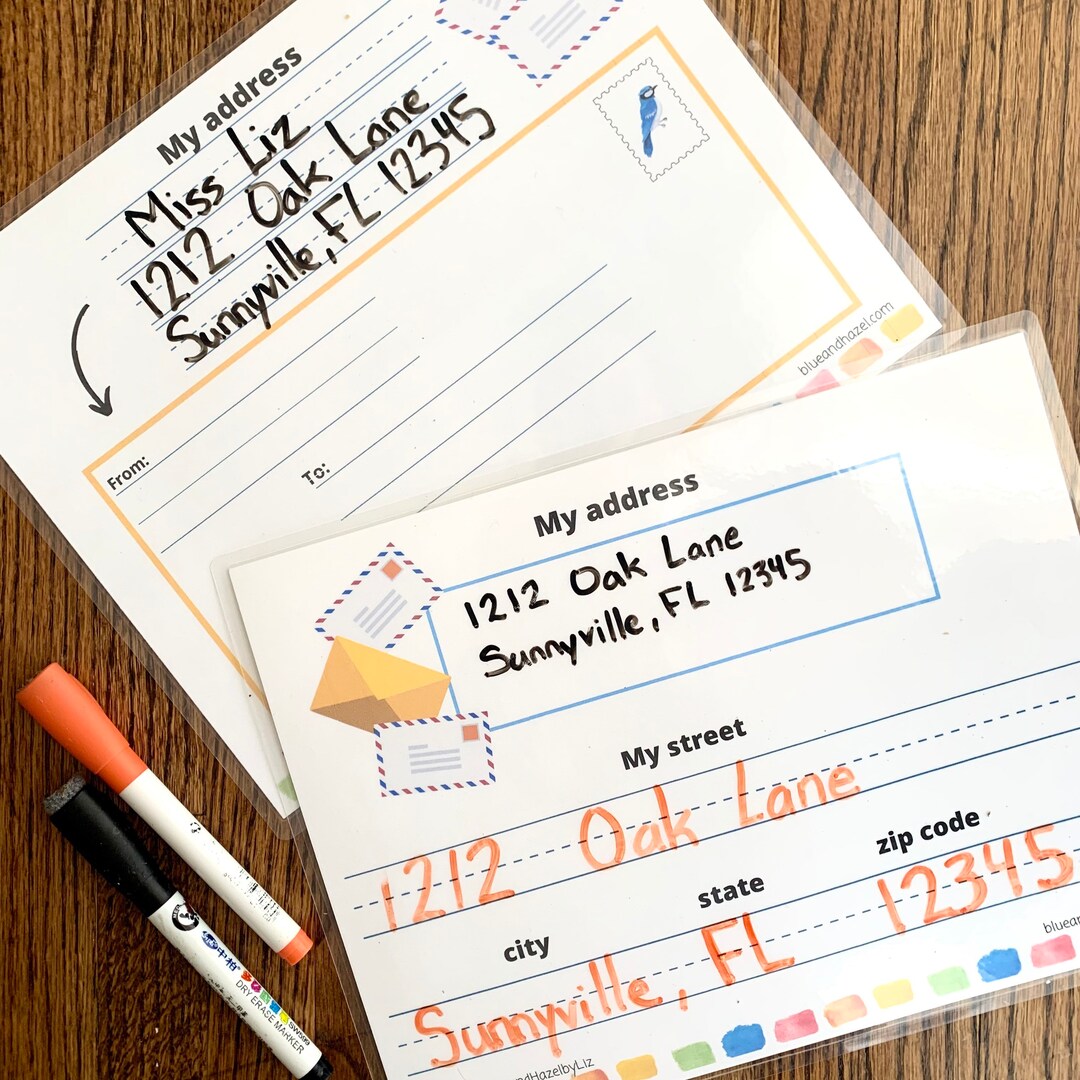 My address
Miss Liz
1212 Oak Lane
Sunnyville, FL 12345
From:
To:
blueandhazel.com
My address
1212 Oak Lane
Sunnyville, FL 12345
My street
1212 Oak Lane
city state zip code
Sunnyville, FL 12345
DRY ERASE MARKER